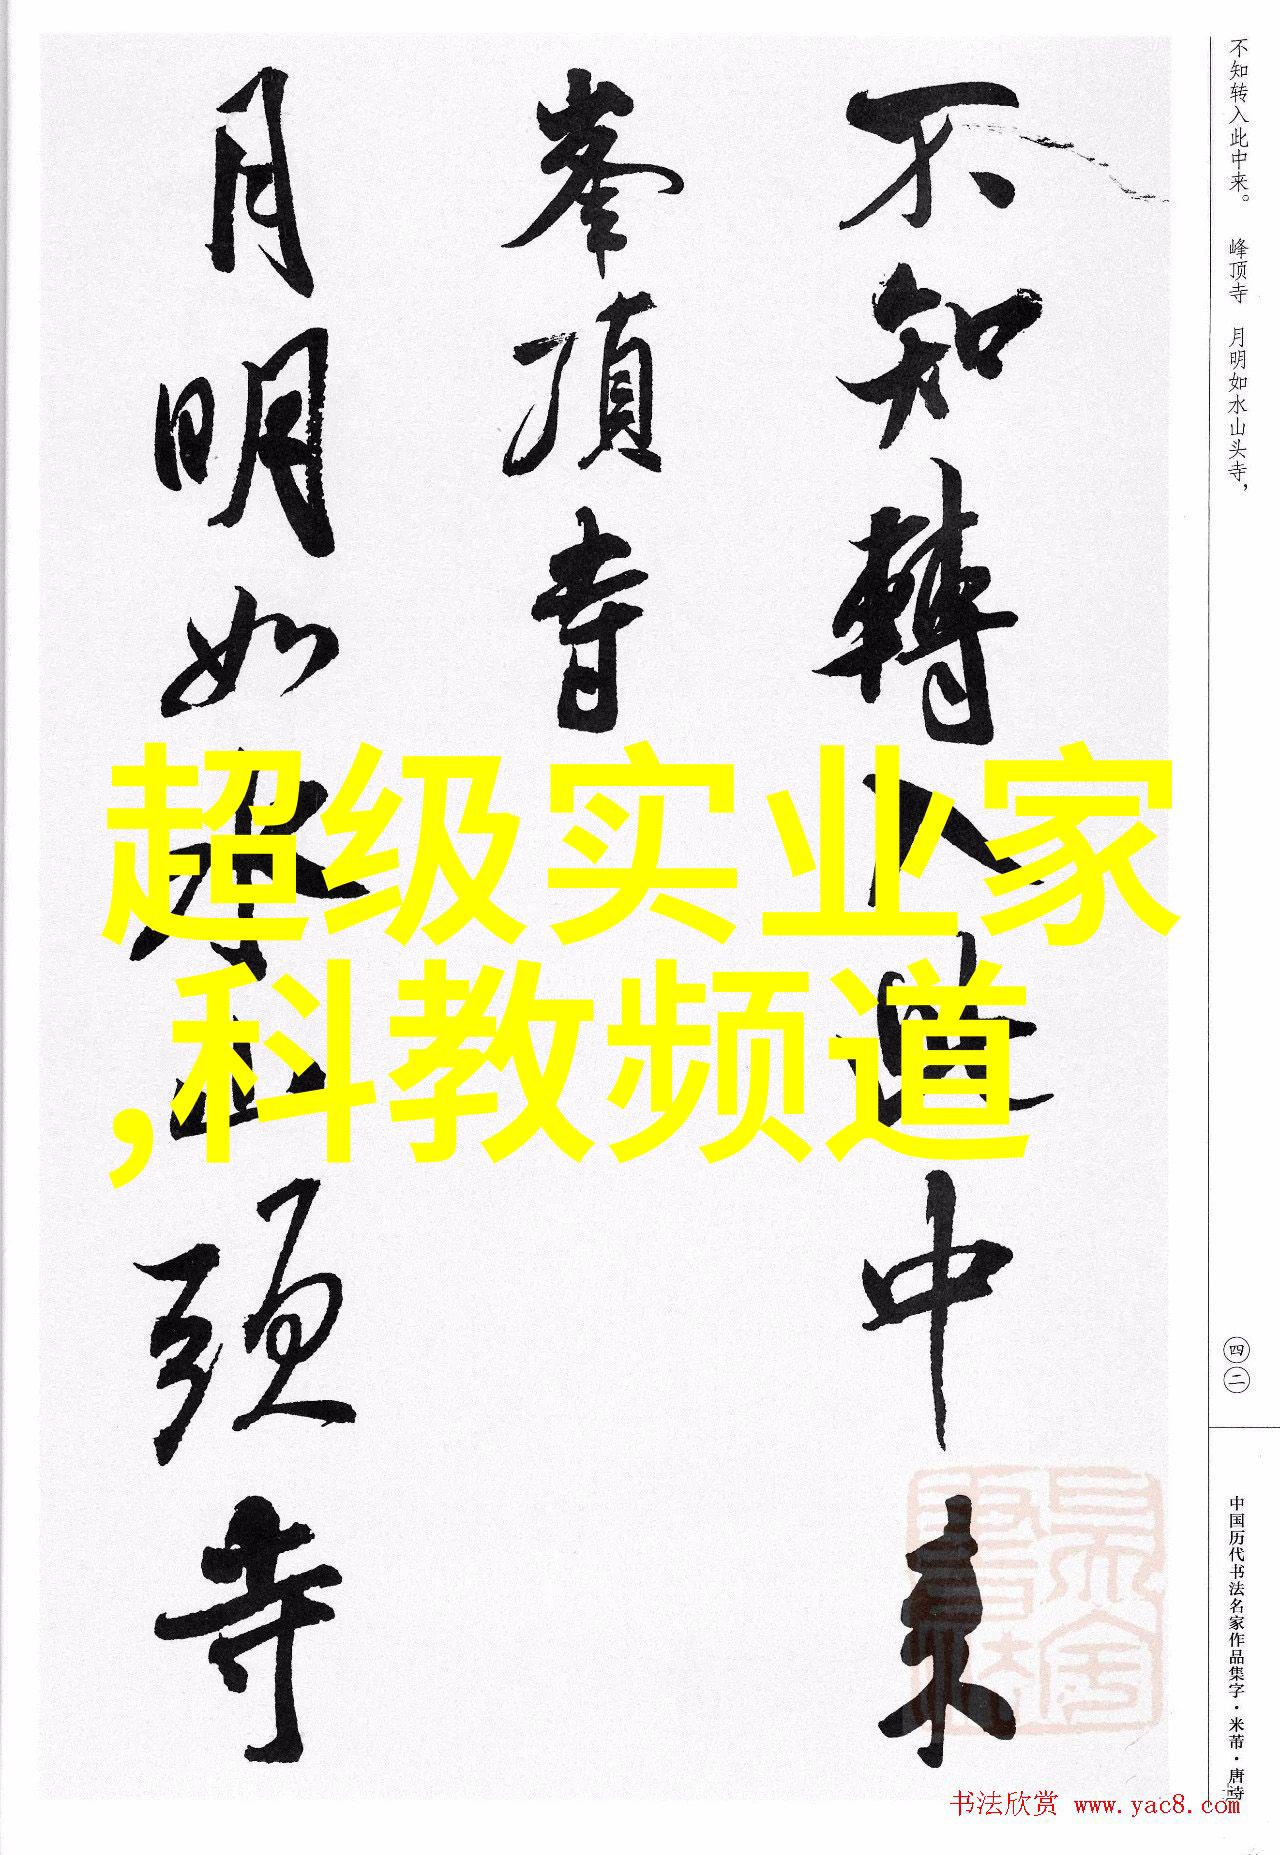 不知轉入此中来
峯頂寺
月明如水山頭寺
超级实业家
,科教频道
不知转入此中来。 峰顶寺 月明如水山头寺，
四二
中国历代书法名家作品集字·米芾·唐诗
书法欣赏 www.yac8.com